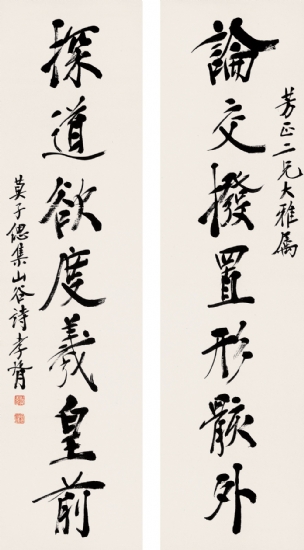 芳正二兄大雅属
論交撥置形骸外
探道欲度羲皇前
莫子偲集山谷詩孝胥